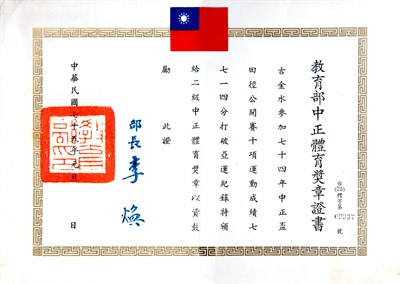 教育部中正體育獎章證書
台(75)體字第 號
古金水參加七十四年中正盃
田徑公開賽十項運動成績七
七一四分打破亞運紀錄特頒
給二級中正體育獎章以資鼓
勵 此證
部長 李煥
中華民國七十五年元月 日
教育部印